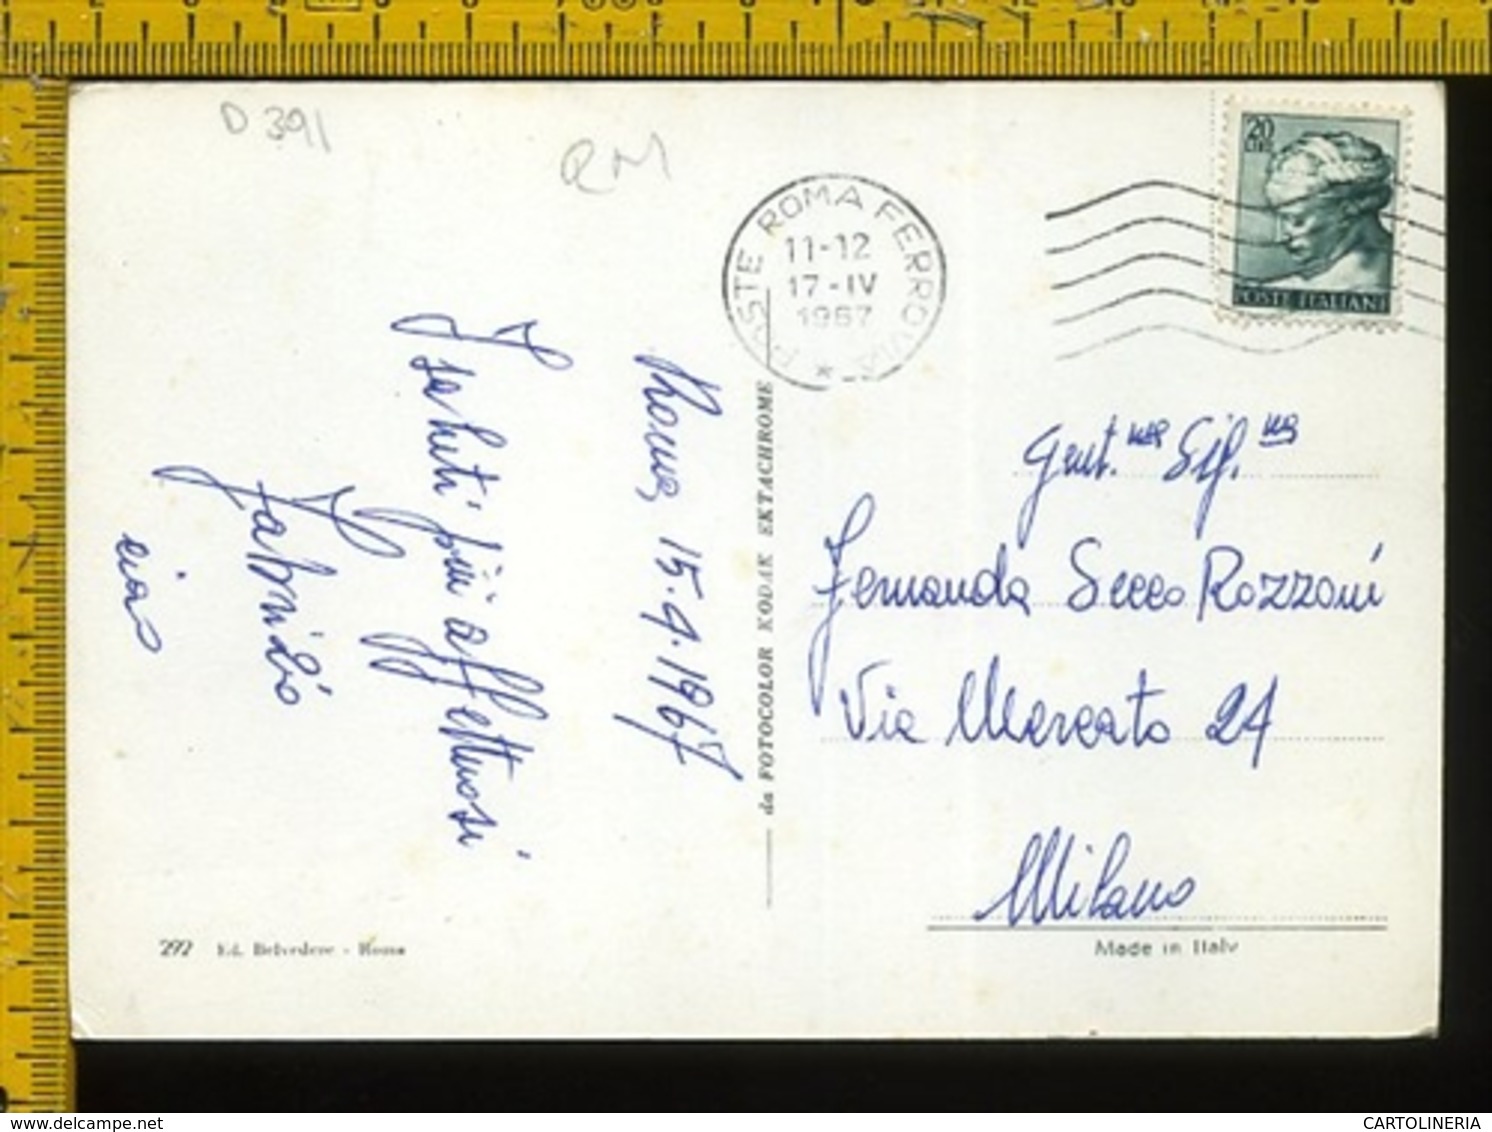 D 391
RM
POSTE ROMA FERROVIA *
11-12
17-IV
1967
20
LIRE
POSTE ITALIANE
Roma, 15.4.1967
I saluti più affettuosi
Fabrizio
ciao
da FOTOCOLOR KODAK EKTACHROME
Gent.ma Sig.na
Fernanda Secco Rozzoni
Via Mercato 24
Milano
292 Ed. Belvedere - Roma
Made in Italy
www.delcampe.net
CARTOLINERIA